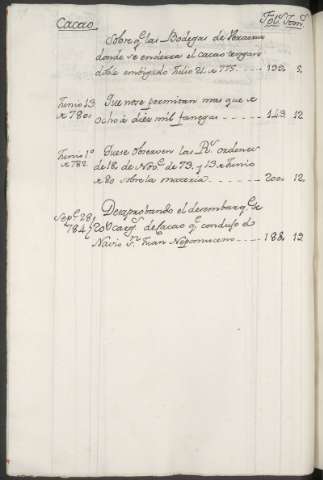 Cacao. Fol.s Tom.s
Sobre q.e las Bodegas de Veracruz
donde se encierra el cacao tengan
doble embigado Julio 21 de 775. - - - 199. 5.
Junio 13 Que no se permitan mas que de
de 780. ocho à diez mil fanegas - - - - - 143 12
Junio 1.º Que se observen las R.s ordenes
de 782. de 18 de Nov.e de 73. y 13 de Junio
de 80 sobre la materia - - - - - - 200. 12.
Sep.e 28 Desaprobando el desembarq.e de
784 carg.s de Cacao q.e condujo el
Navio S.n Juan Nepomuceno - - - 188. 13